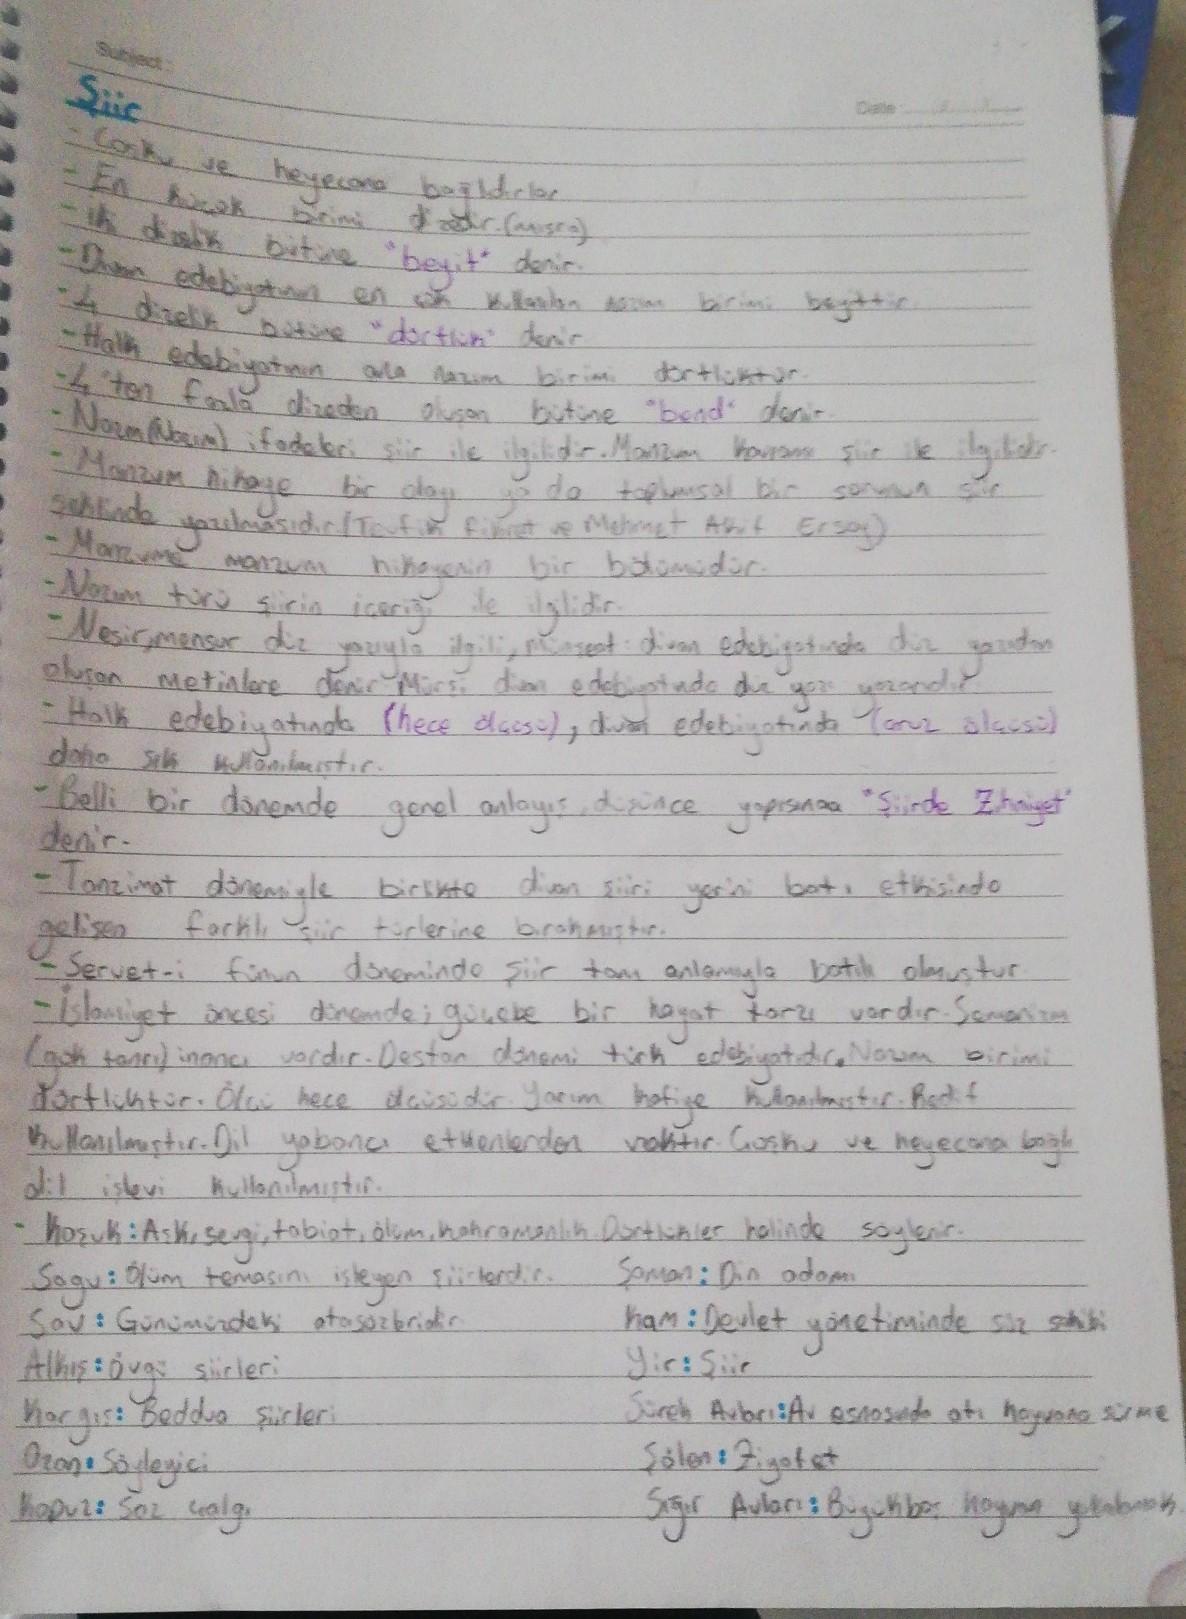 Subject:
Date
Şiir
- Coşku ve heyecana bağlıdırlar
- En küçük birimi dizedir. (mısra)
- iki dizelik bütüne "beyit" denir.
- Divan edebiyatının en çok kullanılan nazım birimi beyittir.
- 4 dizelik bütüne "dörtlük" denir
- Halk edebiyatının ana nazım birimi dörtlüktür.
- 4'ten fazla dizeden oluşan bütüne "bend" denir.
- Nazm (Nazım) ifadeleri şiir ile ilgilidir. Manzum kavramı şiir ile ilgilidir.
- Manzum hikaye bir olay ya da toplumsal bir sorunun şiir
şeklinde yazılmasıdır (Tevfik fikret ve Mehmet Akif Ersoy)
- Manzume manzum hikayenin bir bölümüdür.
- Nazım türü şiirin içeriği ile ilgilidir.
- Nesir, mensur düz yazıyla ilgili, münşeat: divan edebiyatında düz yazıdan
oluşan metinlere denir. divan edebiyatında düz yazı yazarıdır.
- Halk edebiyatında (hece ölçüsü), divan edebiyatında (aruz ölçüsü)
daha sık kullanılmıştır.
- Belli bir dönemde genel anlayış, düşünce yapısına "Şiirde Zihniyet"
denir.
- Tanzimat dönemiyle birlikte divan şiiri yerini batı etkisinde
gelişen farklı şiir türlerine bırakmıştır.
- Servet-i fünun döneminde şiir tam anlamıyla batılı olmuştur
- İslamiyet öncesi dönemde; göçebe bir hayat tarzı vardır. Şamanizm
(gök tanrı) inancı vardır. Destan dönemi türk edebiyatıdır. Nazım birimi
dörtlüktür. Ölçü hece ölçüsüdür. Yarım kafiye kullanılmıştır. Redif
kullanılmıştır. Dil yabancı etkenlerden uzaktır. Coşku ve heyecana bağlı
dil işlevi kullanılmıştır.
- Koşuk: Aşk, sevgi, tabiat, ölüm, kahramanlık. Dörtlükler halinde söylenir.
Sagu: Ölüm temasını işleyen şiirlerdir. Şaman: Din adamı
Sav: Günümüzdeki atasözleridir Kam: Devlet yönetiminde söz sahibi
Alkış: övgü şiirleri Yir: Şiir
Kargış: Beddua şiirleri Sürek Avları: Av esnasında atı hayvana sürme
Ozan: Söyleyici Şölen: Ziyafet
Kopuz: Saz çalgı Sığır Avları: Büyükbaş hayvan yakalamak